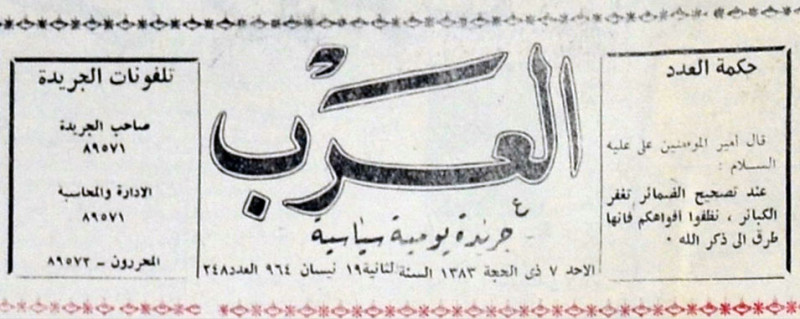 حكمة العدد
قال أمير المؤمنين علي عليه
السلام :
عند تصحيح الضمائر تغفر
الكبائر ، نظفوا افواهكم فانها
طرق الى ذكر الله ٠
العَرَب
جريدة يومية سياسية
الاحد ٧ ذى الحجة ١٣٨٣ السنة لثانية ١٩ نيسان ٩٦٤ العدد ٢٤٨
تلفونات الجريدة
صاحب الجريدة
٨٩٥٧١
الادارة والمحاسبة
٨٩٥٧١
المحررون - ٨٩٥٧٢